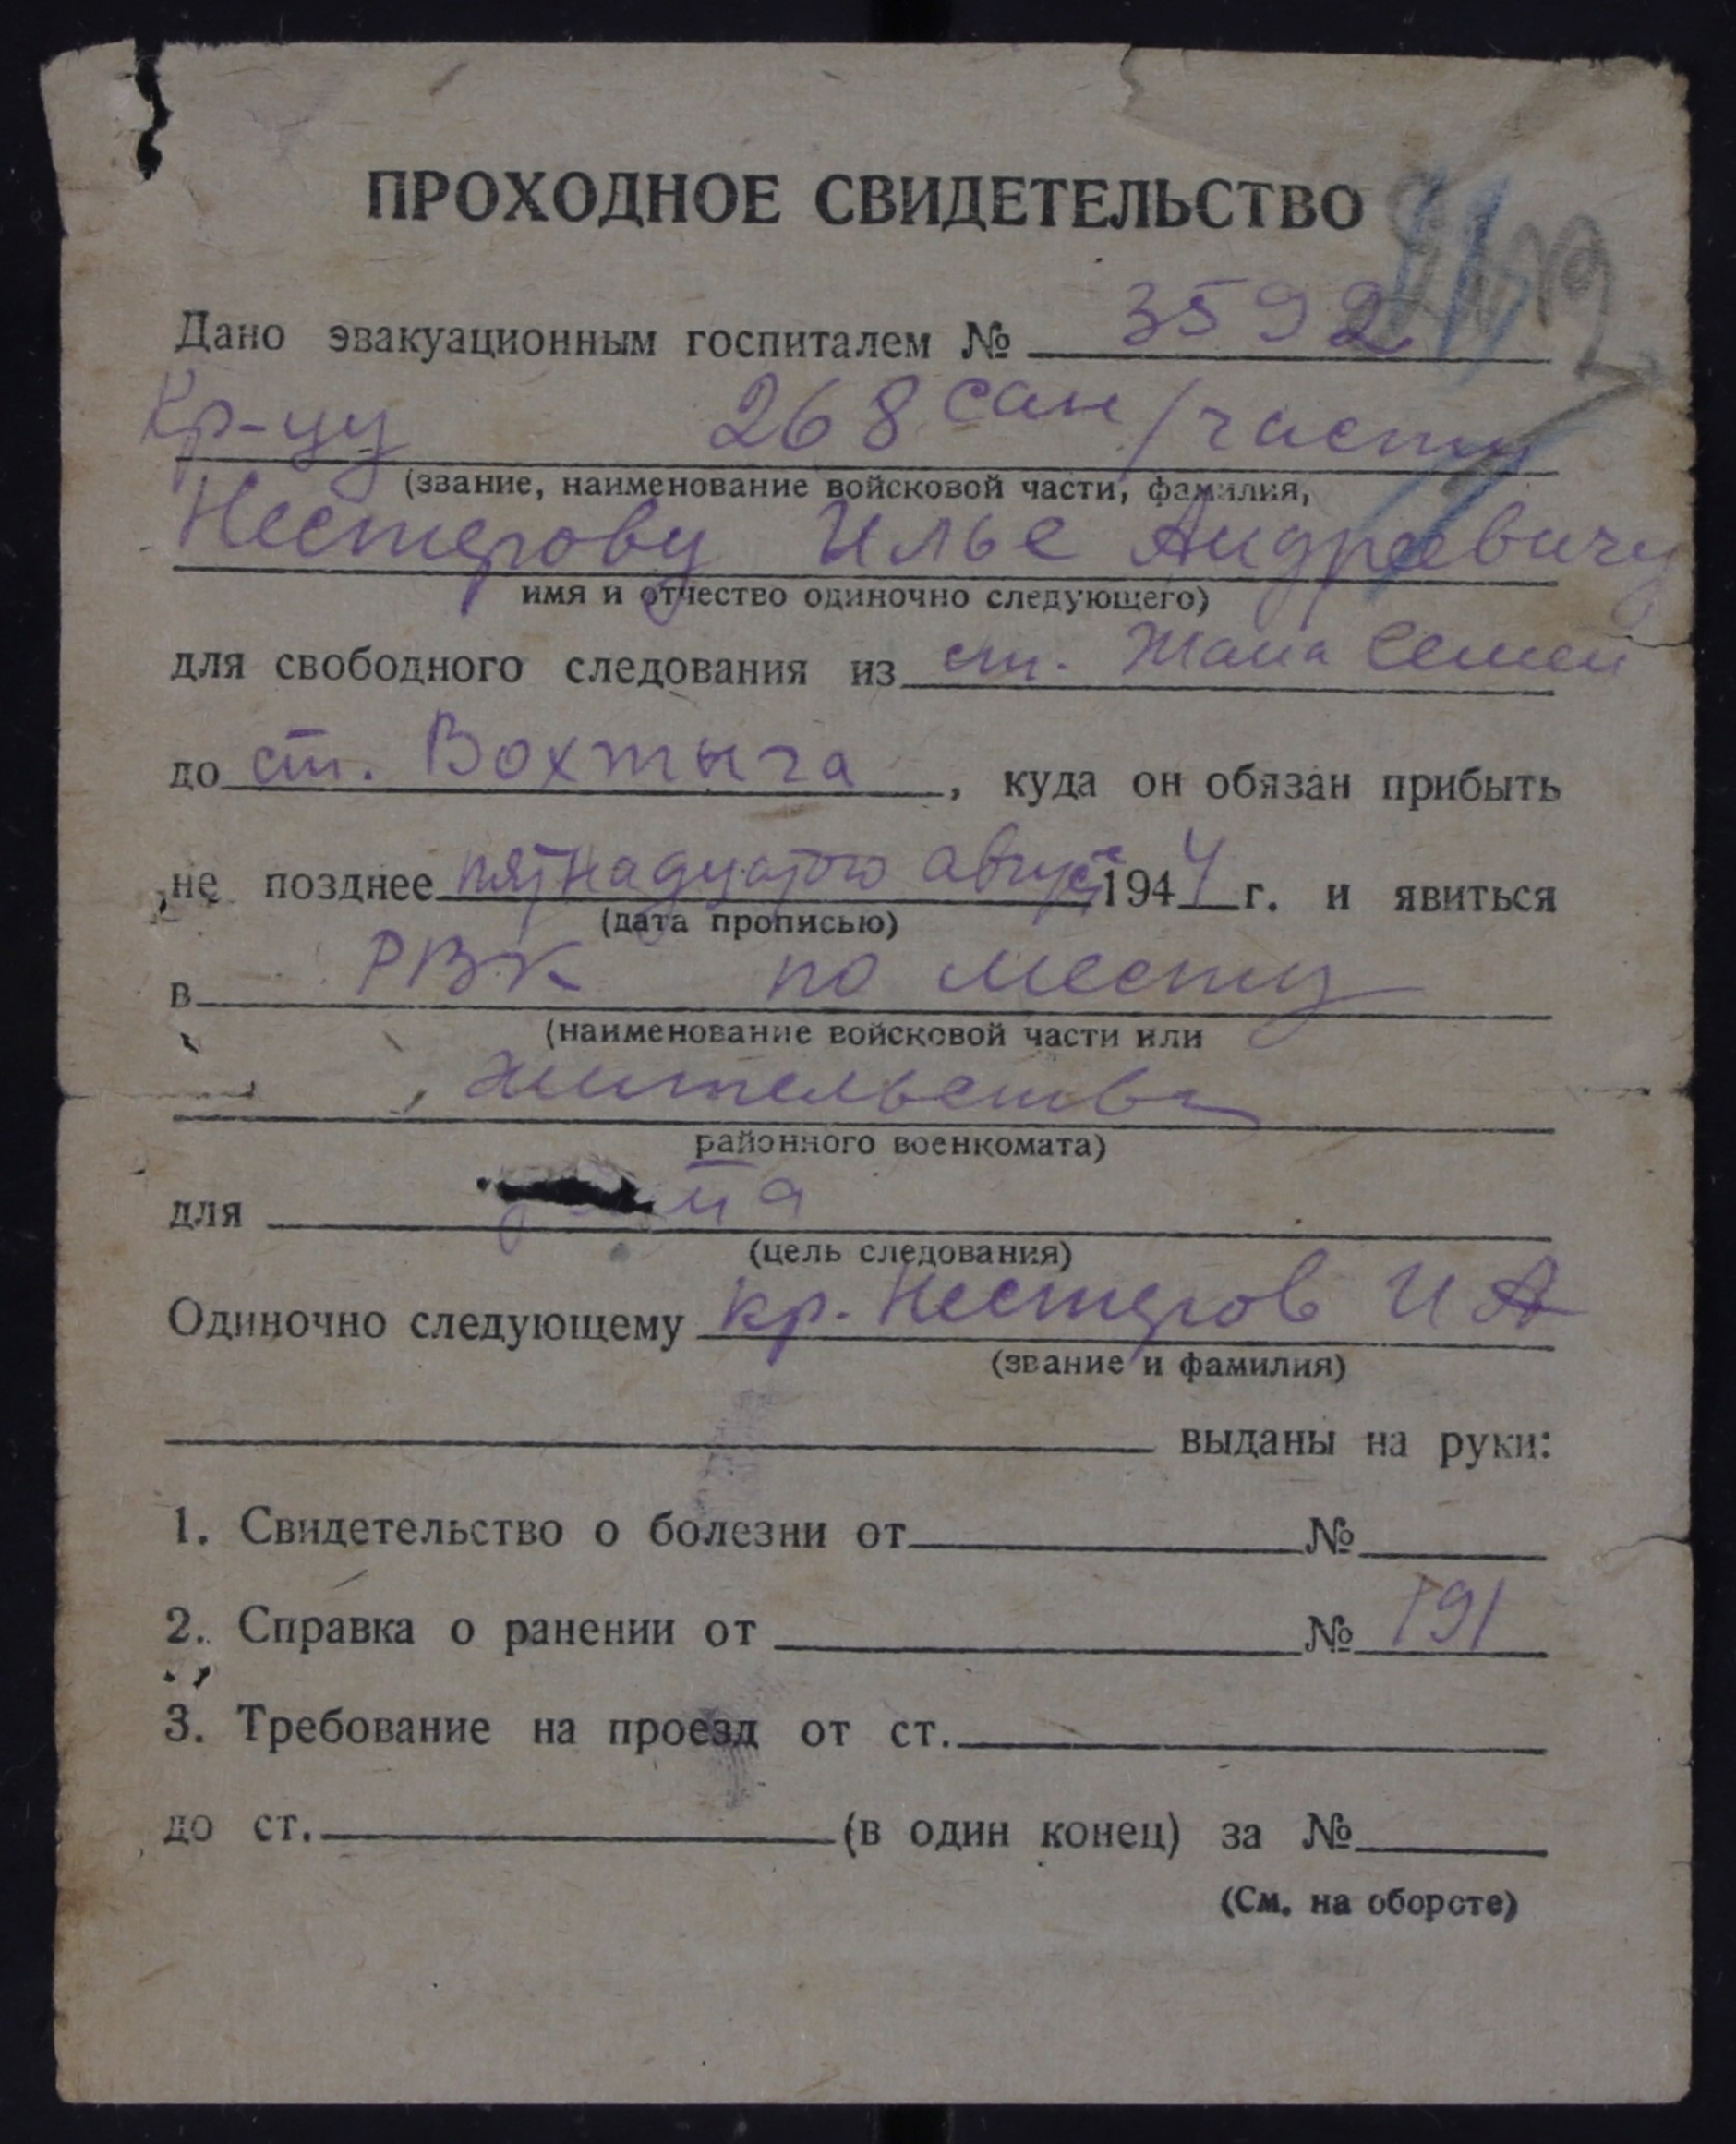 ПРОХОДНОЕ СВИДЕТЕЛЬСТВО
Дано эвакуационным госпиталем № 3592
Кр-цу 268 сан/части
(звание, наименование войсковой части, фамилия,
Нестерову Илье Андреевичу
имя и отчество одиночно следующего)
для свободного следования из ст. Жана Семей
до ст. Вохтыга, куда он обязан прибыть
не позднее пятнадцатого августа 1944 г. и явиться
(дата прописью)
в РВК по месту
(наименование войсковой части или
жительства
районного военкомата)
для
(цель следования)
Одиночно следующему кр. Нестеров И А
(звание и фамилия)
выданы на руки:
1. Свидетельство о болезни от №
2. Справка о ранении от № 191
3. Требование на проезд от ст.
до ст. (в один конец) за №
(См. на обороте)